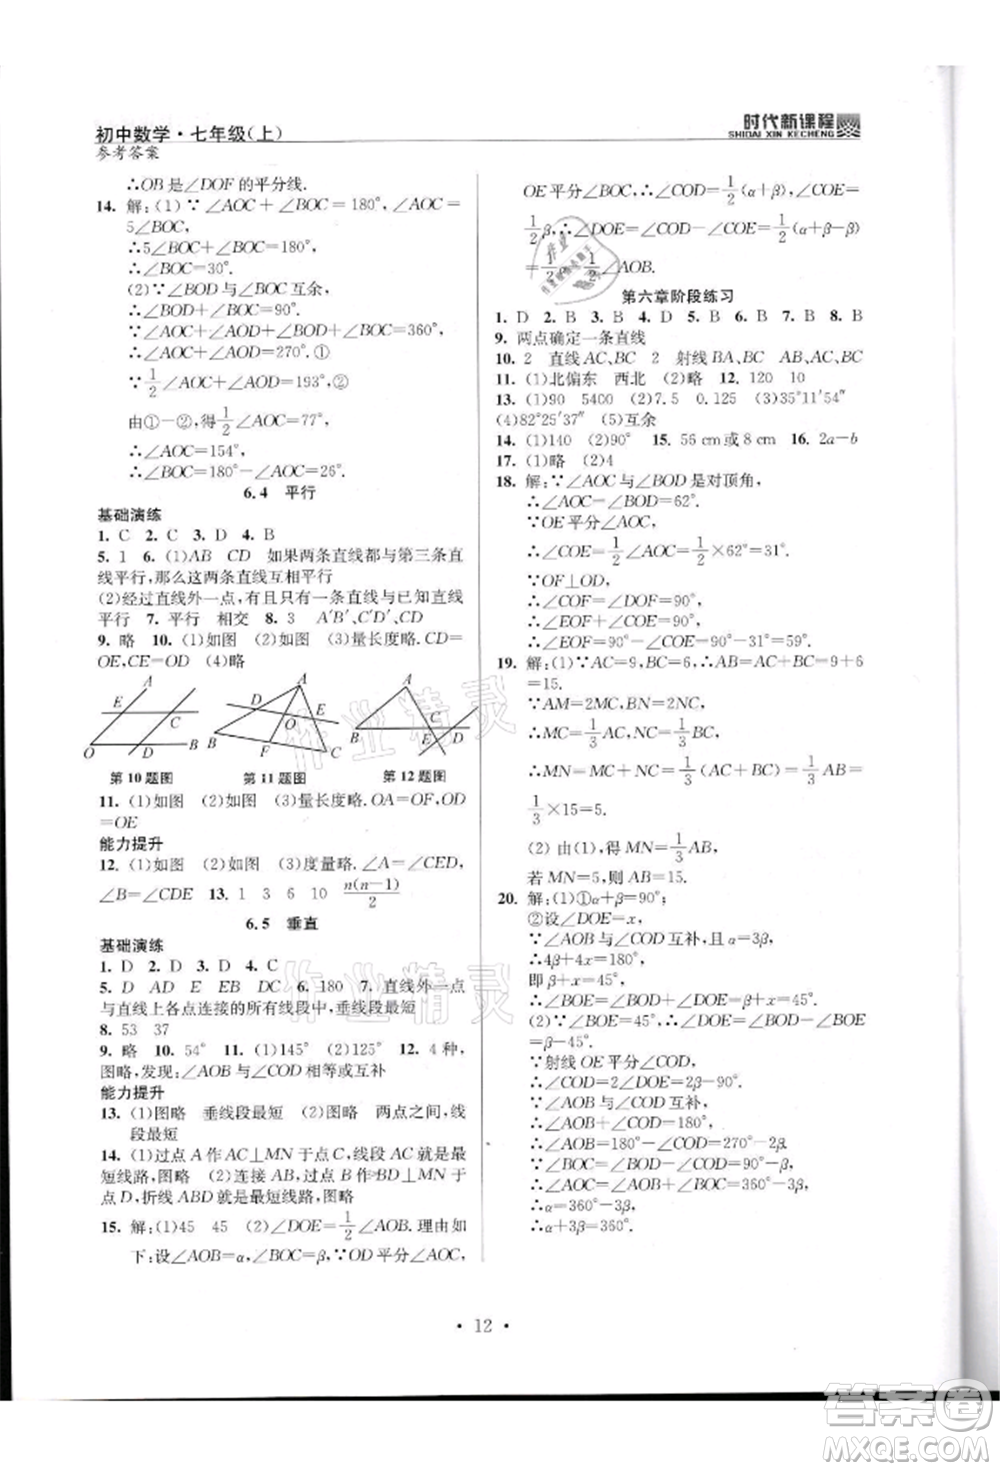 初中数学·七年级(上)
参考答案
时代新课程
SHIDAI XIN KECHENG
∴OB 是∠DOF 的平分线.
14. 解:(1)∵∠AOC+∠BOC=180°,∠AOC=
5∠BOC,
∴5∠BOC+∠BOC=180°.
∴∠BOC=30°.
(2)∵∠BOD 与∠BOC 互余,
∴∠BOD+∠BOC=90°.
∵∠AOC+∠AOD+∠BOD+∠BOC=360°,
∴∠AOC+∠AOD=270°.①
∵1/2∠AOC+∠AOD=193°,②
由①-②,得1/2∠AOC=77°,
∴∠AOC=154°,
∴∠BOC=180°-∠AOC=26°.
6.4 平行
基础演练
1. C 2. C 3. D 4. B
5. 1 6. (1)AB CD 如果两条直线都与第三条直
线平行,那么这两条直线互相平行
(2)经过直线外一点,有一条而且只有一条直线与已知直线
平行 7. 平行 相交 8. 3 A′B′、C′D′、CD
9. 略 10. (1)如图 (2)如图 (3)量长度略. CD=
OE,CE=OD (4)略
A E C O D B
A D E O B F C
A D E B C
第 10 题图 第 11 题图 第 12 题图
11. (1)如图 (2)如图 (3)量长度略. OA=OF,OD
=OE
能力提升
12. (1)如图 (2)如图 (3)度量略. ∠A=∠CED,
∠B=∠CDE 13. 1 3 6 10 n(n-1)/2
6.5 垂直
基础演练
1. D 2. D 3. D 4. C
5. D AD E EB DC 6. 180 7. 直线外一点
与直线上各点连接的所有线段中,垂线段最短
8. 53 37
9. 略 10. 54° 11. (1)145° (2)125° 12. 4 种,
图略,发现:∠AOB 与∠COD 相等或互补
能力提升
13. (1)图略 垂线段最短 (2)图略 两点之间,线
段最短
14. (1)过点 A 作 AC⊥MN 于点 C,AC 就是最短
线路,图略 (2)连接 AB,过点 B 作 BD⊥MN 于
点 D,折线 ABD 就是最短线路,图略
15. 解:(1)45 45 (2)∠DOE=1/2∠AOB. 理由如
下:设∠AOB=α,∠BOC=β,∵OD 平分∠AOC,
OE 平分∠BOC,∴∠COD=1/2(α+β),∠COE=
1/2β,∴∠DOE=∠COD-∠COE=1/2(α+β)-1/2β
=1/2α=1/2∠AOB.
第六章阶段练习
1. D 2. B 3. B 4. D 5. B 6. D 7. B 8. B
9. 两点确定一条直线
10. 2 直线 AC,BC 2 射线 BA,BC AB,AC,BC
11. (1)北偏东 西北 (2)略 12. 120 10
13. (1)90 5400 (2)7.5 0.125 (3)35°11′54″
(4)82°25′37″ (5)互余
14. (1)140 (2)90° 15. 56 cm 或 8 cm 16. 2a-b
17. (1)略 (2)4
18. 解:∵∠AOC 与∠BOD 是对顶角,
∴∠AOC=∠BOD=62°.
∵OE 平分∠AOC,
∴∠COE=1/2∠AOC=1/2×62°=31°.
∵OF⊥OD,
∴∠COF=∠DOF=90°,
∴∠EOF+∠COE=90°,
∴∠EOF=90°-∠COE=90°-31°=59°.
19. 解:(1)∵AC=9,BC=6,∴AB=AC+BC=9+6
=15.
∵AM=2MC,BN=2NC,
∴MC=1/3AC,NC=1/3BC,
∴MN=MC+NC=1/3(AC+BC)=1/3AB=
1/3×15=5.
(2) 由(1),得 MN=1/3AB,
若 MN=5,则 AB=15.
20. 解:(1)①α+β=90°;
②设∠DOE=∠COE=x.
∵∠AOB 与∠COD 互补,且 α=3β,
∴4β+4x=180°,
即 β+x=45°,
∴∠BOE=∠BOD+∠DOE=β+x=45°.
(2)∵∠BOE=45°,∴∠DOE=∠BOD-∠BOE
=β-45°.
∵射线 OE 平分∠COD,
∴∠COD=2∠DOE=2β-90°.
∵∠AOB 与∠COD 互补,
∴∠AOB+∠COD=180°,
∴∠AOB=180°-∠COD=270°-2β.
∵∠AOB+∠AOD+∠BOD=360°,
∴α=360°-3β,
∴α+3β=360°.
·12·
作业精灵
作业精灵
答案圈
MXQE.COM